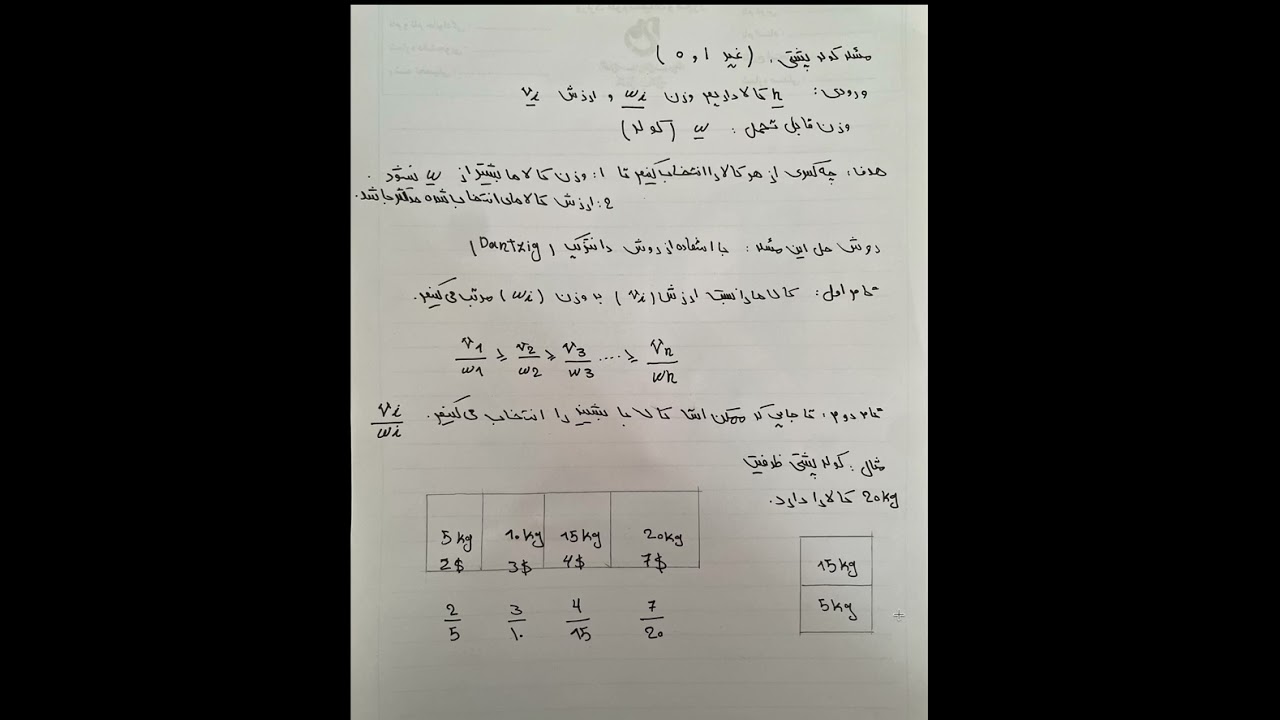 مسئله کوله پشتی: (غیر 1 و 0)
ورودی: n کالا داریم وزن wi و ارزش vi
وزن قابل تحمل: w (کوله)
هدف: چه کسری از هر کالا را انتخاب کنیم تا 1: وزن کالاها بیشتر از w نشود.
2: ارزش کالاهای انتخاب شده حداکثر باشد.
روش حل این مسئله: با استفاده از روش دانتزیگ (Dantzig)
گام اول: کالاها را نسبت ارزش (vi) به وزن (wi) مرتب می کنیم.
v1/w1 ≥ v2/w2 ≥ v3/w3 .... ≥ vn/wn
گام دوم: تا جایی که ممکن است کالا با بیشترین vi/wi را انتخاب می کنیم.
مثال: کوله پشتی ظرفیت
20kg کالا را دارد.
5kg 10kg 15kg 20kg
2$ 3$ 4$ 7$
2/5 3/10 4/15 7/20
15kg
5kg